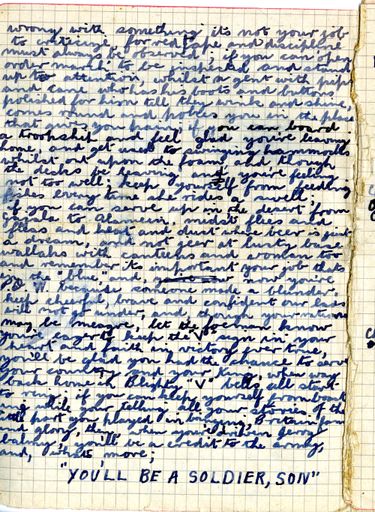 wrong with something it's not your job
to criticize, for red tape and discipline
must always be observed; if you can open
order march to be inspected, and stand
up to attention whilst a gent with pips
and cane who has his boots and buttons
polished for him tell they wink and shine,
comes round and you in the place
that you; if you can board
a troopship and feel glad you're leaving
home, and get used to swinging hammocks
whilst out upon the foam, and though
the decks be heaving and you're feeling
not too well, keep yourself from feeding
fishes every time she rides a swell;
if you can serve in the desert from
to Alamein, midst flies and
fleas and heat and dust where beer is just
a dream, and not jeer at lusty base
wallahs with canteens and women too
important your job that's
in the "blue"; and you're
P.O.W because someone made a blunder
keep cheerful, brave and confident our lads
will not go under, and though your rations
may be measure, let the know
you can try keep the in your
heart and faith in victory over true,
you'll be glad you had the chance to serve
your country and your King; when away
back home in Blighty "V" bells all start
to ring; if you can keep yourself from boasting
while your telling all your stories of the
part you played in Britain fame
and glory, then when you
you'll be a credit to the army,
and, what's more;
"YOU'LL BE A SOLDIER, SON"